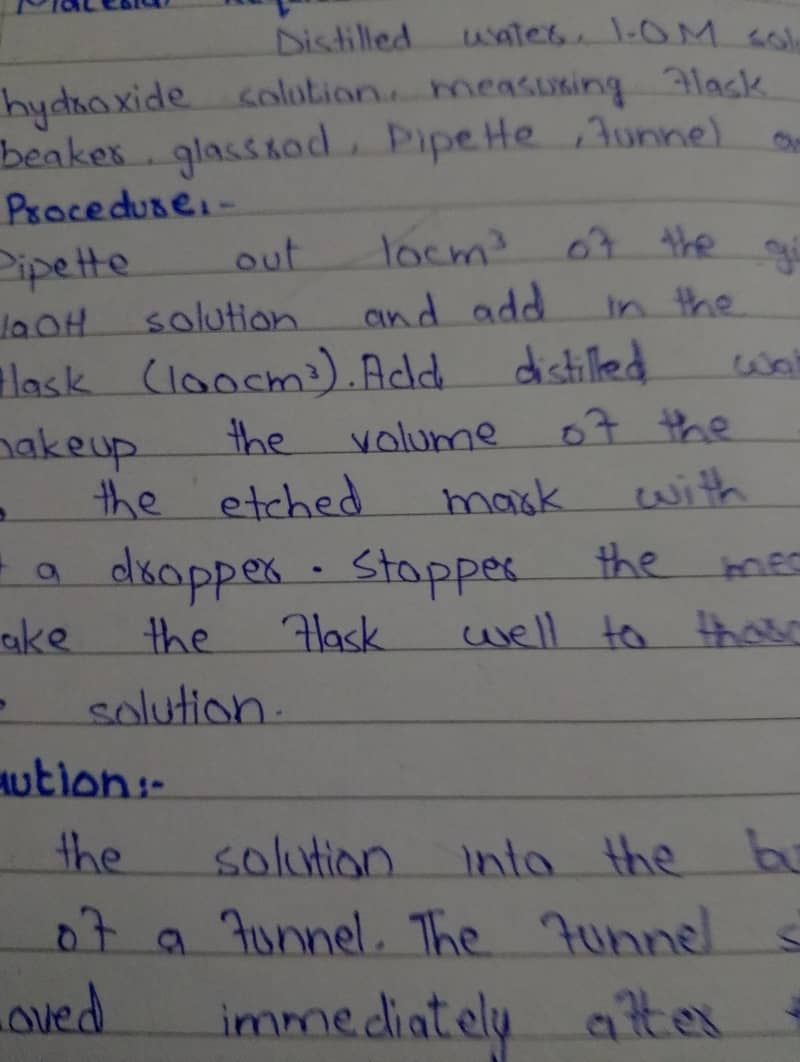 Distilled water, 1.0M
hydroxide solution, measuring flask
beaker, glassrod, Pipette, funnel
Procedure:-
Pipette out 10cm³ of the
solution and add in the
flask (100cm³). Add distilled
makeup the volume of the
the etched mark with
a dropper. Stopper the
the flask well to
solution.
the solution into the
of a funnel. The funnel
immediately after